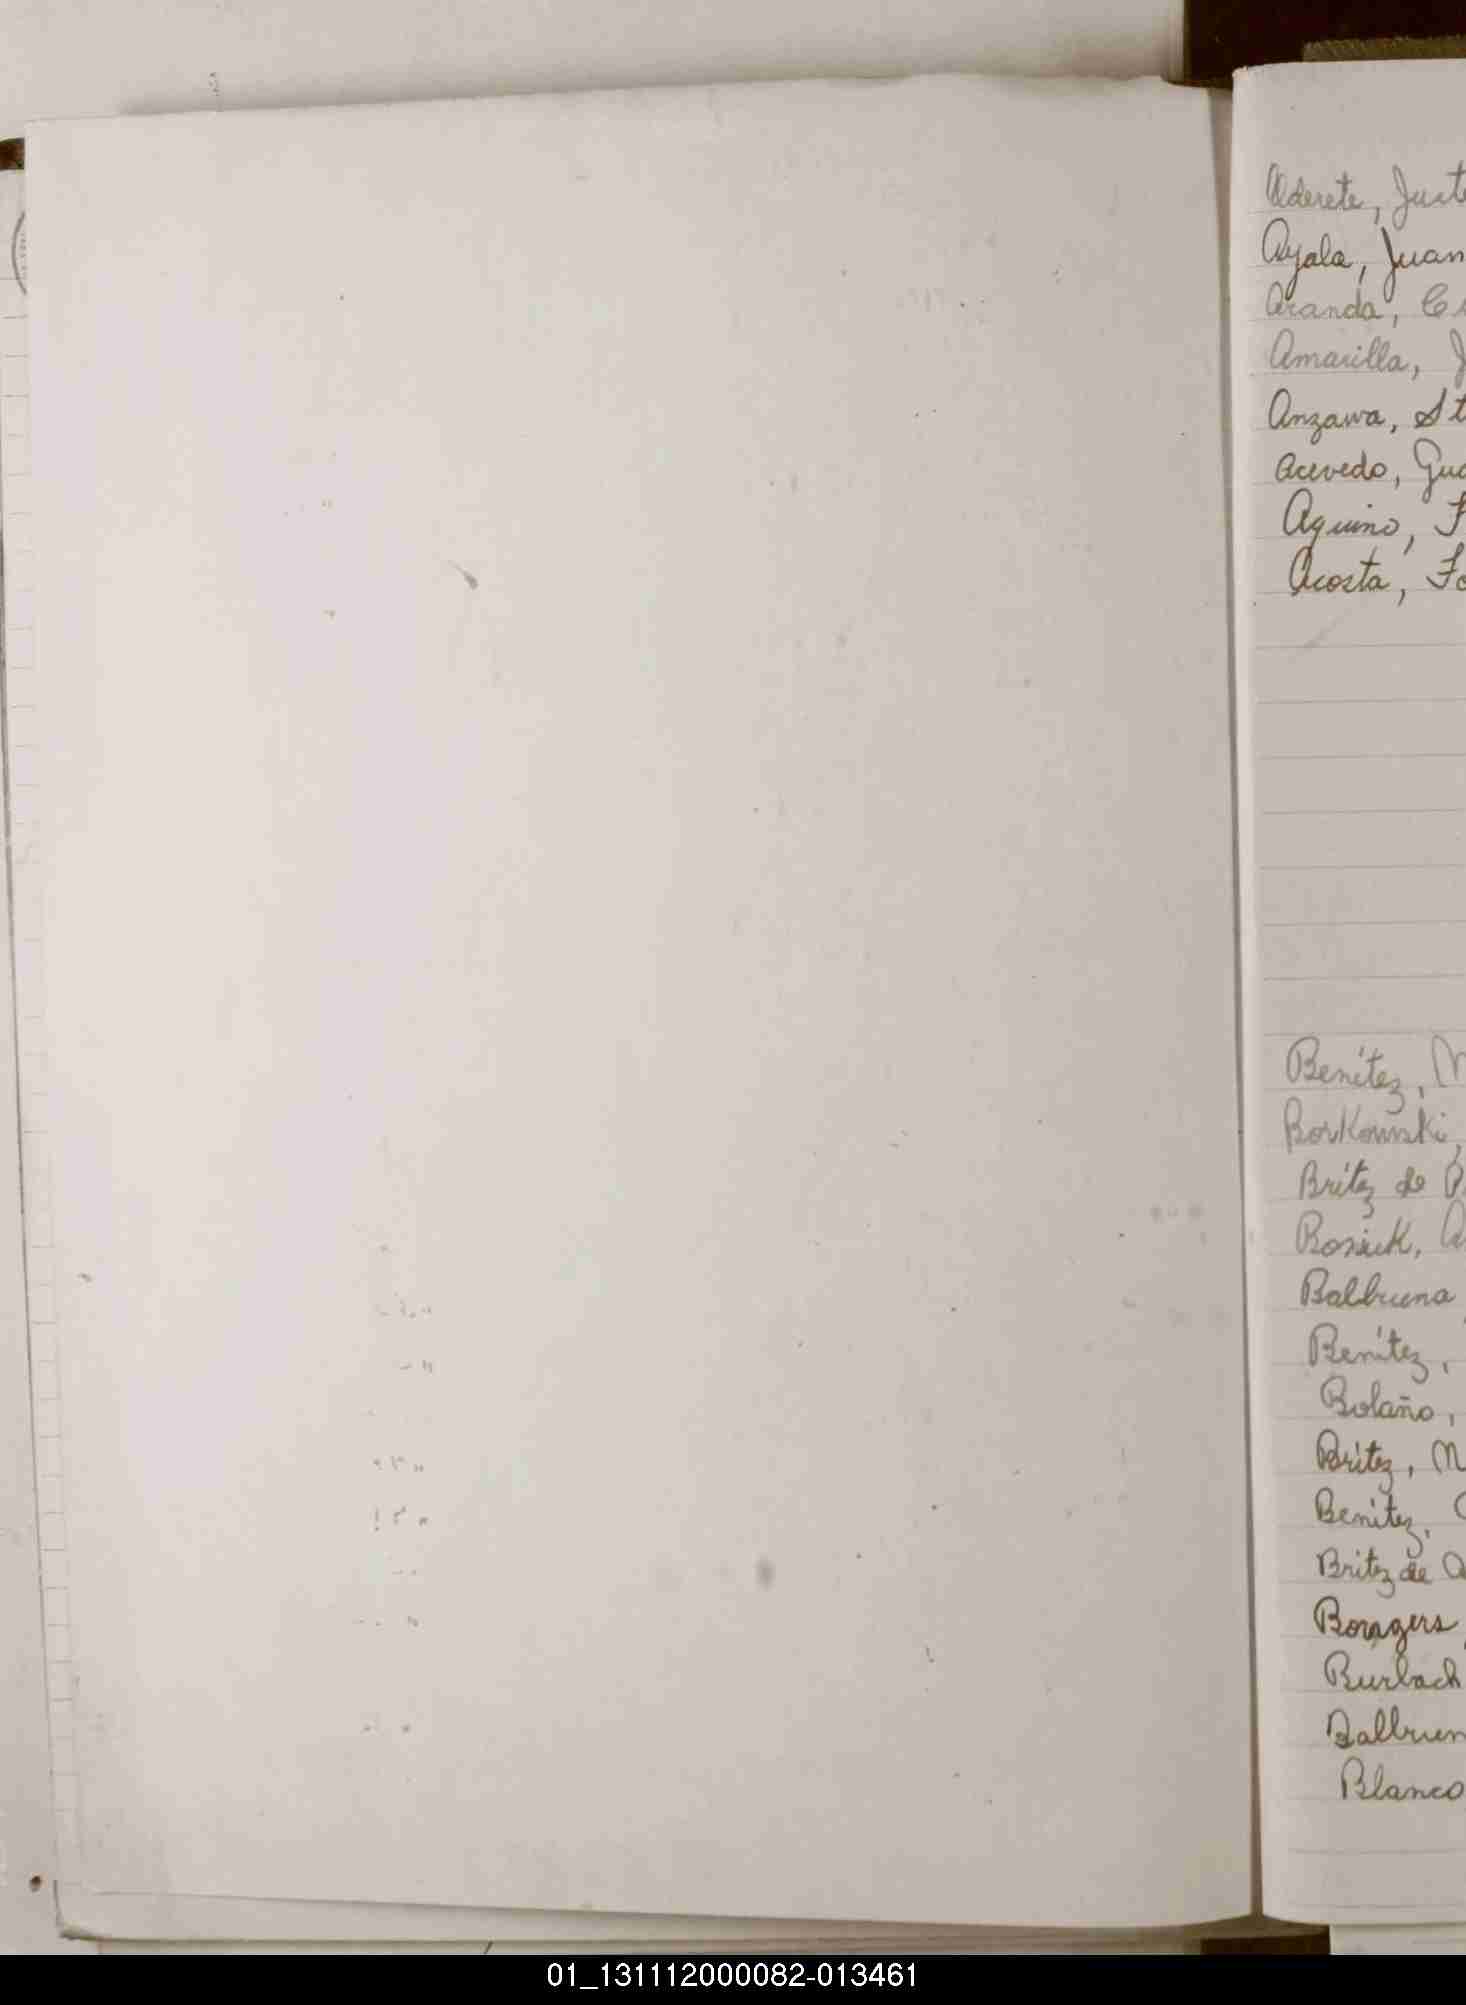 Alderete, Just
Ayala, Juan
Aranda, C
Amarilla, J
Anzawa, St
Acevedo, Gua
Aquino, F
Acosta, Fo
Benítez, M
Borkowski,
Brítez de
Bosiuk, A
Balbuena
Benítez,
Bolaño,
Brítez, M
Benítez, C
Britez de A
Burbach
Balbuen
Blanco
01_131112000082-013461